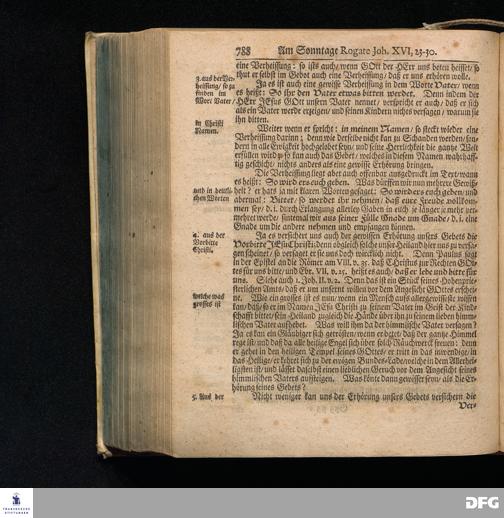 788 Am Sonntage Rogate Joh. XVI, 23-30.
eine Verheissung: so ists auch/ wenn GOtt der HErr uns beten heisset/ so
thut er selbst im Gebot auch eine Verheissung/ daß er uns erhören wolle.
3. aus der Ver-
heissung/ so zu
finden im
Wort Vater/
Ja es ist auch eine gewisse Verheissung in dem Worte Vater/ wenn
es heist: So ihr den Vater etwas bitten werdet. Denn indem der
HErr JEsus GOtt unsern Vater nennet/ verspricht er auch/ daß er sich
als ein Vater werde erzeigen/ und seinen Kindern nichts versagen/ warum sie
ihn bitten.
in Christi
Namen.
Weiter wenn er spricht: in meinem Namen/ so steckt wieder eine
Verheissung darinn; denn wie derselbe nicht kan zu Schanden werden/ son-
dern in alle Ewigkeit hochgelobet seyn/ und seine Herrlichkeit die gantze Welt
erfüllen wird: so kan auch das Gebet/ welches in diesem Namen wahrhaff-
tig geschicht/ nichts anders als eine gewisse Erhörung bringen.
Die Verheissung liegt aber auch offenbar ausgedruckt im Text/ wann
es heißt: So wird ers euch geben. Was dürffen wir nun mehrere Gewiß-
und in deutli-
chen Worten
heit? er hats ja mit klaren Worten gesaget: So wird ers euch geben/ und
abermal: Bittet/ so werdet ihr nehmen/ daß eure Freude vollkom-
men sey/ d. i. durch Erlangung allerley Gaben in euch je länger je mehr ver-
mehret werde/ sintemal wir aus seiner Fülle Gnade um Gnade/ d. i. eine
Gnade um die andere nehmen und empfangen können.
4. aus der
Vorbitte
Christi.
Ja es versichert uns auch der gewissen Erhörung unsers Gebets die
Vorbitte JEsu Christi: denn obgleich solche unser Heiland hier uns zu versa-
gen scheinet/ so versaget er sie uns doch würcklich nicht. Denn Paulus sagt
in der Epistel an die Römer am VIII. v. 34. daß Christus zur Rechten GOt-
tes für uns bitte/ und Ebr. VII. v. 25. heist es auch/ daß er lebe und bitte für
uns. Siehe auch 1. Joh. II. v. 2. Denn das ist ein Stück seines Hohenprie-
sterlichen Amts/ daß er um unsert willen vor dem Angesicht GOttes erschei-
welche was
grosses ist
ne. Wie ein grosses ist es nun/ wenn ein Mensch aufs allergewisseste wissen
kan/ daß/ so er im Namen JEsu Christi zu seinem Vater im Geist der Kind-
schafft bittet/ sein Heiland zugleich die Hände über ihn zu seinem lieben himm-
lischen Vater aufhebet. Was will ihm da der himmlische Vater versagen?
Ja es kan ein Gläubiger sich getrösten/ wenn er betet/ daß der gantze Himmel
rege ist/ und daß da alle heilige Engel sich über solch Räuchwerck freuen: denn
er gehet in den heiligen Tempel seines GOttes/ er tritt in das inwendige/ in
das Heilige/ er kehret sich zu der ewigen Bundes-Lade/ welche in dem Allerhei-
ligsten ist/ und lässet daselbst einen lieblichen Geruch vor dem Angesicht seines
himmlischen Vaters aufsteigen. Was könte dann gewisser seyn/ als die Er-
hörung seines Gebets?
5. Aus der
Nicht weniger kan uns der Erhörung unsers Gebets versichern die
Ver-
FRANCKESCHE
STIFTUNGEN
DFG